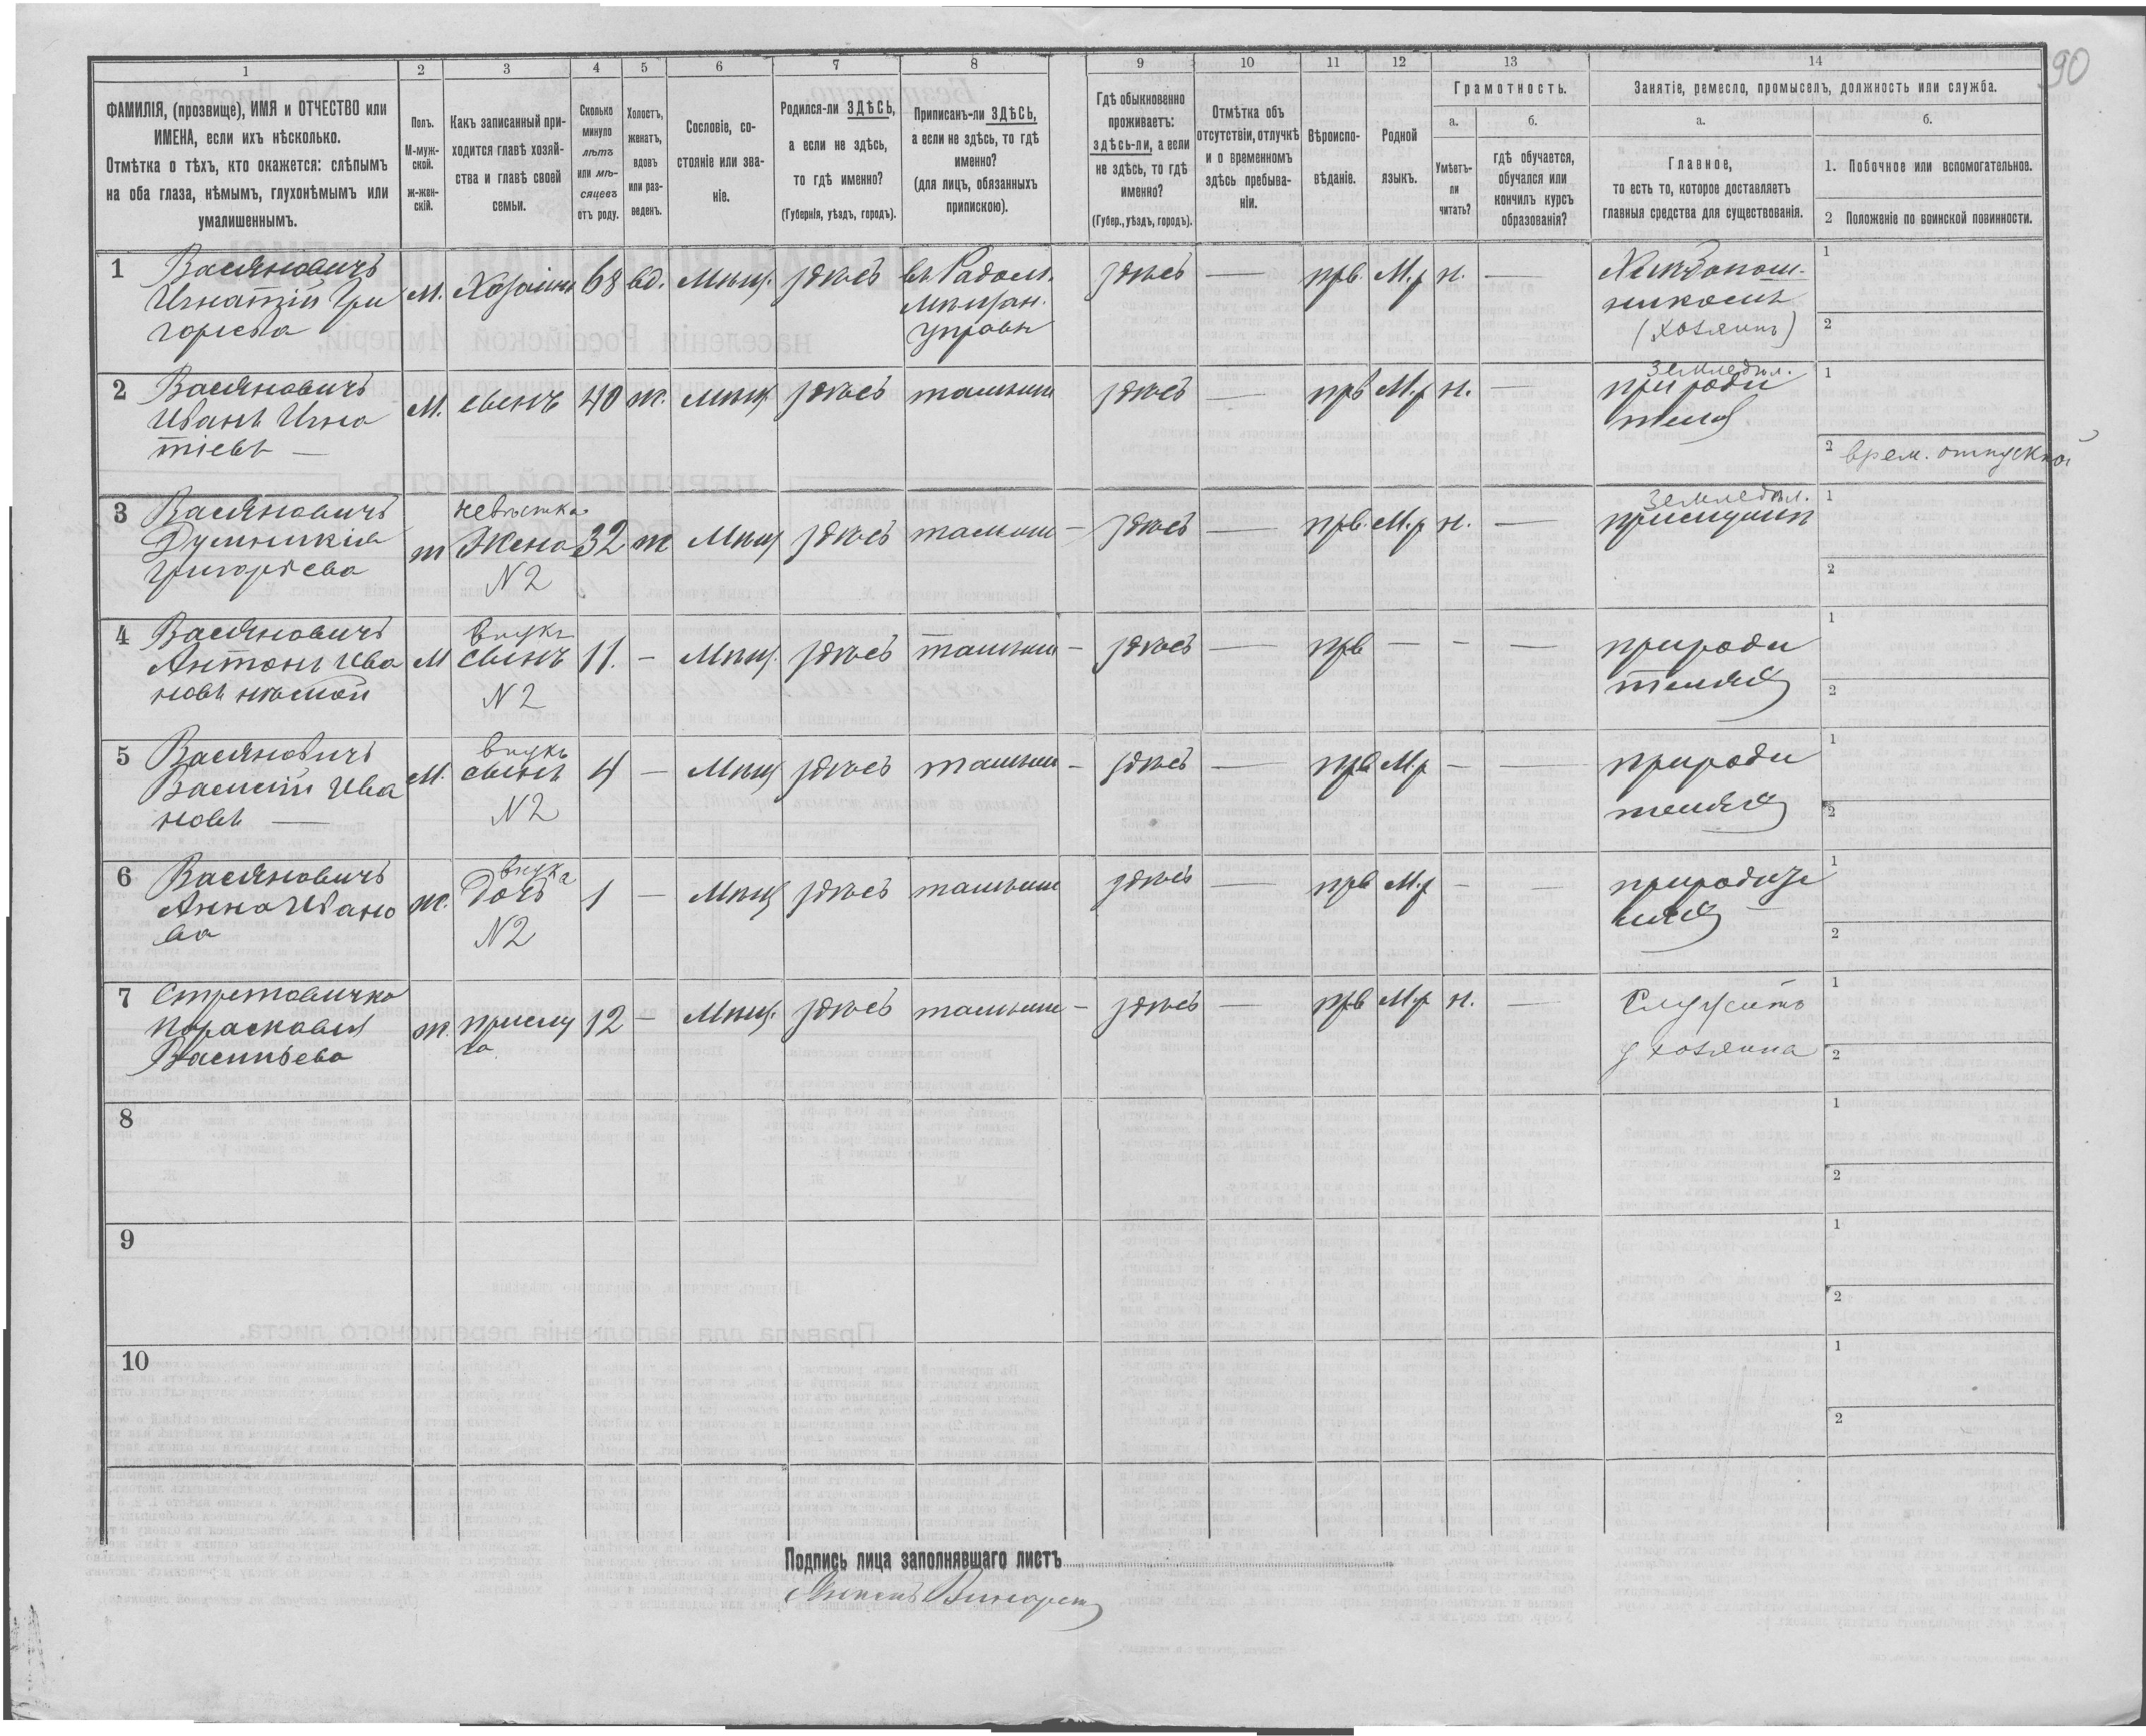 90
1
2
3
4
5
6
7
8
9
10
11
12
13
14
ФАМИЛІЯ, (прозвище), ИМЯ и ОТЧЕСТВО или
ИМЕНА, если ихъ нѣсколько.
Отмѣтка о тѣхъ, кто окажется: слѣпымъ
на оба глаза, нѣмымъ, глухонѣмымъ или
умалишеннымъ.
Полъ.
М-муж-
ской.
ж-жен-
скій.
Какъ записанный при-
ходится главѣ хозяй-
ства и главѣ своей
семьи.
Сколько
минуло
лѣтъ
или мѣ-
сяцевъ
отъ роду.
Холостъ,
женатъ,
вдовъ
или раз-
веденъ.
Сословіе, со-
стояніе или зва-
ніе.
Родился-ли ЗДѢСЬ,
а если не здѣсь,
то гдѣ именно?
(Губернія, уѣздъ, городъ).
Приписанъ-ли ЗДѢСЬ,
а если не здѣсь, то гдѣ
именно?
(для лицъ, обязанныхъ
припискою).
Гдѣ обыкновенно
проживаетъ:
здѣсь-ли, а если
не здѣсь, то гдѣ
именно?
(Губер., уѣздъ, городъ).
Отмѣтка объ
отсутствіи, отлучкѣ
и о временномъ
здѣсь пребыва-
ніи.
Вѣроиспо-
вѣданіе.
Родной
языкъ.
Грамотность.
а.
Умѣетъ-
ли
читать?
б.
гдѣ обучается,
обучался или
кончилъ курсъ
образованія?
Занятіе, ремесло, промыселъ, должность или служба.
а.
Главное,
то есть то, которое доставляетъ
главныя средства для существованія.
б.
1. Побочное или вспомогательное.
2 Положеніе по воинской повинности.
1 Васяновичъ
Игнатій Гри
горіева
М. Хозяинъ 68 вд. Мѣщ. здѣсь въ Радом.
мѣщан.
управѣ
здѣсь — прв. М.р н. —
Хлѣбопаш-
(хозяинъ)
1
2
2 Васяновичъ
Иванъ Игна
тіевъ —
М. сынъ 40 ж. мѣщ здѣсь тамъже здѣсь — прв М.р н. —
Земледѣл.
при роди
1
2 врем. отпускной
3 Васяновичъ
Григорьева
ж невѣстка
Жена
N 2
32 ж Мѣщ здѣсь тамъже — здѣсь — прв. М.р н. —
Земледѣл.
1
2
4 Васяновичъ
Антонъ Ива
новъ нѣмой
М внукъ
сынъ
N 2
11. — Мѣщ. здѣсь тамъже — здѣсь — прв — — —
природи
теляхъ
1
2
5 Васяновичъ
Василій Ива
новъ —
М. внукъ
сынъ
N 2
4 — Мѣщ здѣсь тамъже — здѣсь — прв М.р — —
природи
теляхъ
1
2
6 Васяновичъ
Анна Ивано
ва
ж. внука
дочь
N 2
1 — Мѣщ здѣсь тамъже здѣсь — прв М.р — —
природите
ляхъ
1
2
7
Парасковія
Васильева
ж. прислу
га
12 — Мѣщ. здѣсь тамъже — здѣсь — прв М.р н. —
Служитъ
у хозяина
1
2
8
1
2
9
1
2
10
1
2
Подпись лица заполнявшаго листъ